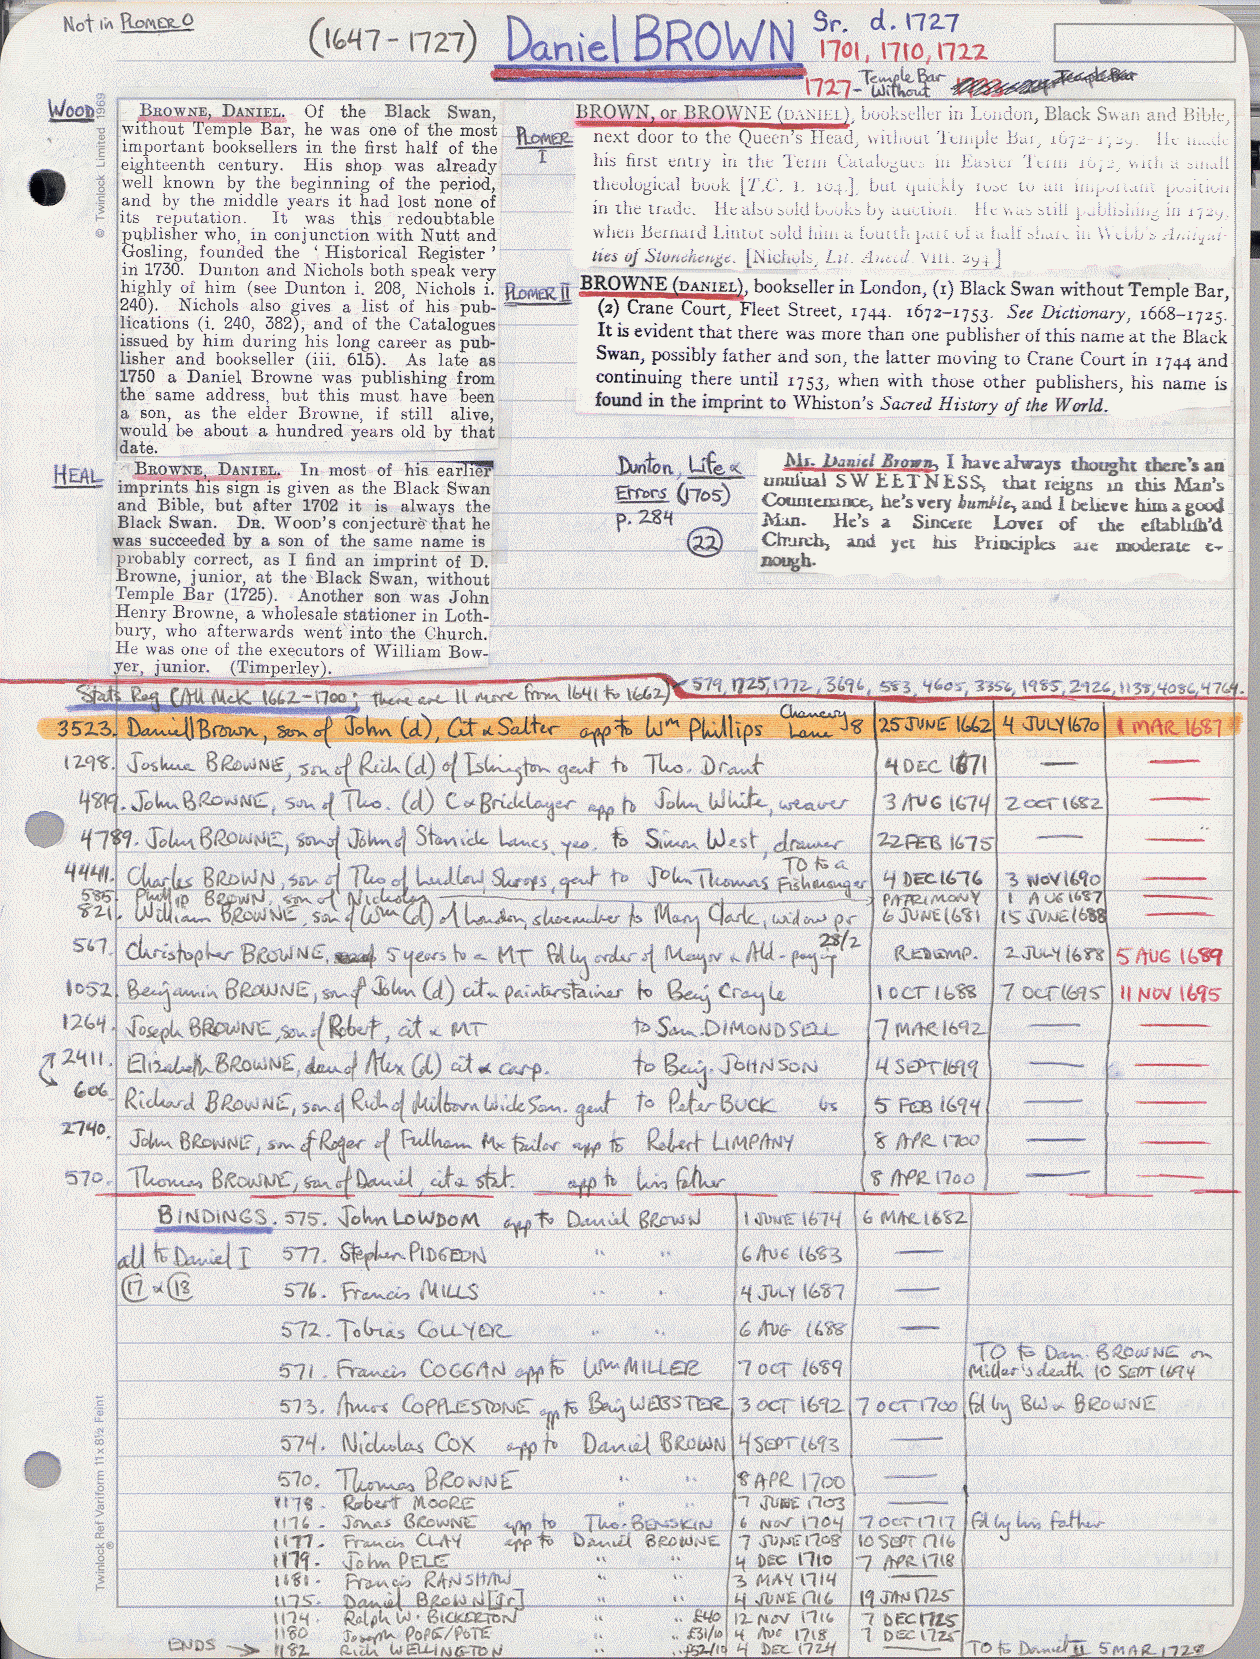 Not in PLOMER 0
(1647-1727) Daniel BROWN Sr. d. 1727
1701, 1710, 1722
1727- Temple Bar Without
© Twinlock Limited 1969
WOOD
BROWNE, DANIEL. Of the Black Swan,
without Temple Bar, he was one of the most
important booksellers in the first half of the
eighteenth century. His shop was already
well known by the beginning of the period,
and by the middle years it had lost none of
its reputation. It was this redoubtable
publisher who, in conjunction with Nutt and
Gosling, founded the 'Historical Register'
in 1730. Dunton and Nichols both speak very
highly of him (see Dunton i. 208, Nichols i.
240). Nichols also gives a list of his pub-
lications (i. 240, 382), and of the Catalogues
issued by him during his long career as pub-
lisher and bookseller (iii. 615). As late as
1750 a Daniel Browne was publishing from
the same address, but this must have been
a son, as the elder Browne, if still alive,
would be about a hundred years old by that
date.
PLOMER I
BROWN, or BROWNE (DANIEL), bookseller in London, Black Swan and Bible,
next door to the Queen's Head, without Temple Bar, 1672-1729. He made
his first entry in the Term Catalogues in Easter Term 1672, with a small
theological book [T.C. I. 104.], but quickly rose to an important position
in the trade. He also sold books by auction. He was still publishing in 1729,
when Bernard Lintot sold him a fourth part of a half share in Webb's Antiqui-
ties of Stonehenge. [Nichols, Lit. Anecd. VIII. 294]
PLOMER II
BROWNE (DANIEL), bookseller in London, (1) Black Swan without Temple Bar,
(2) Crane Court, Fleet Street, 1744. 1672-1753. See Dictionary, 1668-1725.
It is evident that there was more than one publisher of this name at the Black
Swan, possibly father and son, the latter moving to Crane Court in 1744 and
continuing there until 1753, when with those other publishers, his name is
found in the imprint to Whiston's Sacred History of the World.
HEAL
BROWNE, DANIEL. In most of his earlier
imprints his sign is given as the Black Swan
and Bible, but after 1702 it is always the
Black Swan. DR. WOOD'S conjecture that he
was succeeded by a son of the same name is
probably correct, as I find an imprint of D.
Browne, junior, at the Black Swan, without
Temple Bar (1725). Another son was John
Henry Browne, a wholesale stationer in Loth-
bury, who afterwards went into the Church.
He was one of the executors of William Bow-
yer, junior. (Timperley).
Dunton, Life &
Errors (1705)
p. 284
22
Mr. Daniel Brown, I have always thought there's an
unusual SWEETNESS, that reigns in this Man's
Countenance, he's very humble, and I believe him a good
Man. He's a Sincere Lover of the establish'd
Church, and yet his Principles are moderate e-
nough.
Stats Reg (All McK 1662-1700; there are 11 more from 1641 to 1662) 579, 1725, 1772, 3696, 583, 4605, 3356, 1985, 2926, 1138, 4086, 4764.
3523. Daniell Brown, son of John (d), Cit & Salter app to Wm Phillips Chancery Lane 8 25 JUNE 1662 4 JULY 1670 1 MAR 1687
1298. Joshua BROWNE, son of Rich (d) of Islington gent to Tho. Drant 4 DEC 1671 — —
4819. John BROWNE, son of Tho. (d) C & Bricklayer app to John White, weaver 3 AUG 1674 2 OCT 1682 —
4789. John BROWNE, son of John of Stanick Lancs, yeo. to Simon West, drawer 22 FEB 1675 — —
4441. Charles BROWN, son of Tho of Ludlow, Shrops, gent to John Thomas TO to a Fishmonger 4 DEC 1676 3 NOV 1690 —
585. Phillip BROWN, son of Nicholas PATRIMONY 1 AUG 1687 —
821. William BROWNE, son of Wm (d) of London, shoemaker to Mary Clark, widow pr 6 JUNE 1681 15 JUNE 1688 —
567. Christopher BROWNE, 5 years to a MT fd by order of Mayor & Ald - paying 28/2 REDEMP. 2 JULY 1688 5 AUG 1689
1052. Benjamin BROWNE, son of John (d) cit & painterstainer to Benj Crayle 1 OCT 1688 7 OCT 1695 11 NOV 1695
1264. Joseph BROWNE, son of Robert, cit & MT to Sam. DIMONDSELL 7 MAR 1692 — —
2411. Elizabeth BROWNE, dau of Alex (d) cit & carp. to Benj. JOHNSON 4 SEPT 1699 — —
606. Richard BROWNE, son of Rich of Milborn Wick Som. gent to Peter BUCK 5 FEB 1694 — —
2740. John BROWNE, son of Roger of Fulham Mx tailor app to Robert LIMPANY 8 APR 1700 — —
570. Thomas BROWNE, son of Daniel, cit & stat. app to his father 8 APR 1700 — —
BINDINGS. 575. John LOWDOM app to Daniel BROWN 1 JUNE 1674 6 MAR 1682
all to Daniel I 577. Stephen PIDGEON " " 6 AUG 1683 —
17 & 18 576. Francis MILLS " " 4 JULY 1687 —
572. Tobias COLLYER " " 6 AUG 1688 —
571. Francis COGGAN app to Wm MILLER 7 OCT 1689 TO to Dan. BROWNE on Miller's death 10 SEPT 1694
573. Amos COPPLESTONE app to Benj WEBSTER 3 OCT 1692 7 OCT 1700 fd by BW & BROWNE
574. Nicholas COX app to Daniel BROWN 4 SEPT 1693 —
570. Thomas BROWNE " " 8 APR 1700 —
1178. Robert MOORE " " 7 JUNE 1703 —
1176. Jonas BROWNE app to Tho. BENSKIN 6 NOV 1704 7 OCT 1717 fd by his father
1177. Francis CLAY app to Daniel BROWNE 7 JUNE 1708 10 SEPT 1716
1179. John PELE " " 4 DEC 1710 7 APR 1718
1181. Francis RANSHAW " " 3 MAY 1714 —
1175. Daniel BROWN [Jr] " " 4 JUNE 1716 19 JAN 1725
1174. Ralph W. BICKERTON " " £40 12 NOV 1716 7 DEC 1725
1180. Joseph POPE/POTE " " £31/10 4 AUG 1718 7 DEC 1725
ENDS → 1182 Rich WELLINGTON " " £52/10 4 DEC 1724 — TO to Daniel II 5 MAR 1728
Twinlock Ref Variform 11 x 8½ Feint